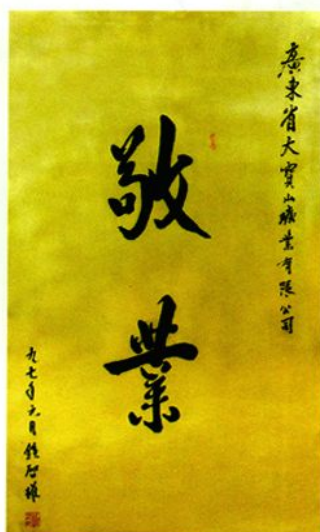 廣東省大寶山礦業有限公司
敬業
九七年元月